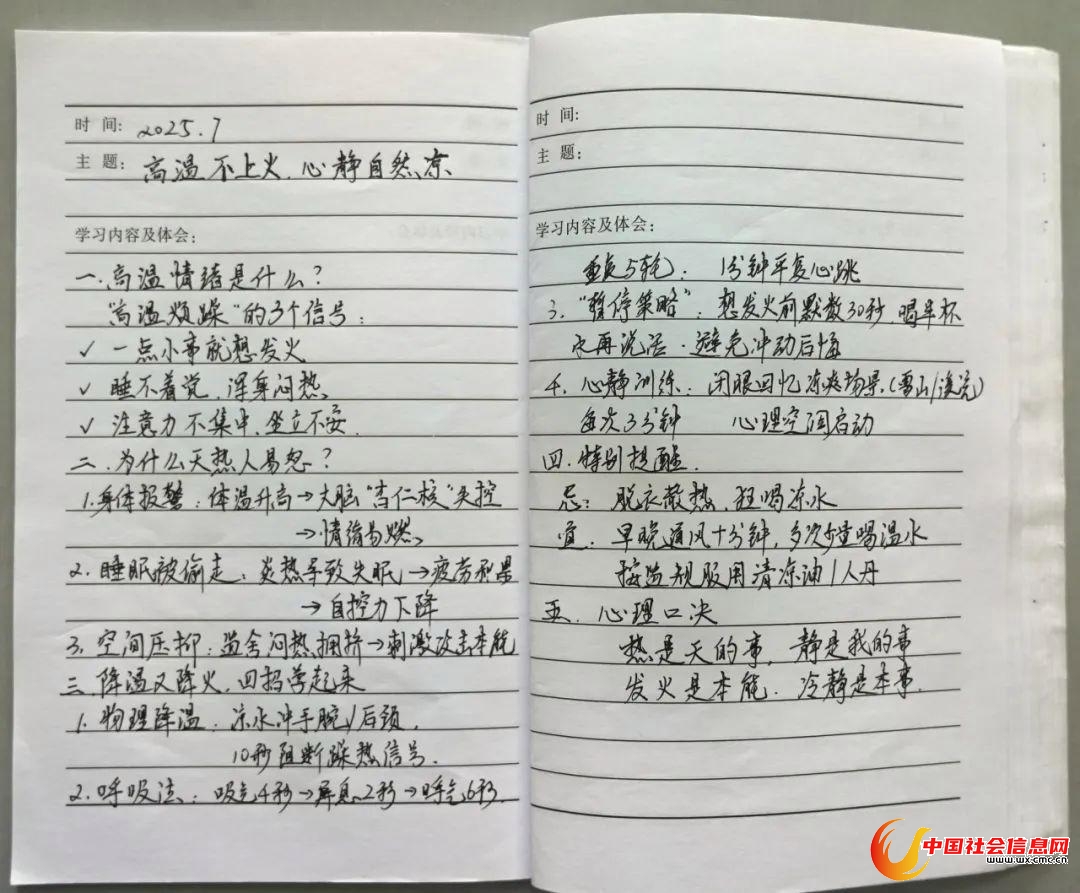 时 间: 2025.7
主 题: 高温不上火.心静自然凉
学习内容及体会:
一.高温情绪是什么?
"高温烦躁"的3个信号:
✓ 一点小事就想发火
✓ 睡不着觉,浑身闷热
✓ 注意力不集中.坐立不安.
二.为什么天热人易怒?
1.身体报警:体温升高→大脑"杏仁核"失控
→情绪易燃
2.睡眠被偷走:炎热导致失眠→疲劳积累
→自控力下降
3.空间压抑:监舍闷热拥挤→刺激攻击本能
三.降温又降火,四招学起来
1.物理降温:凉水冲手腕/后颈.
10秒阻断燥热信号.
2.呼吸法:吸气4秒→屏息2秒→呼气6秒.
时 间:
主 题:
学习内容及体会:
重复5轮:1分钟平复心跳
3."暂停策略":想发火前默数30秒.喝半杯
水再说话.避免冲动后悔
4.心静训练:闭眼回忆凉爽场景.(雪山/溪流)
每次3分钟 心理空调启动
四.特别提醒.
忌:脱衣散热,狂喝凉水
宜:早晚通风十分钟,多次少量喝温水
按监规服用清凉油/人丹
五.心理口决
热是天的事,静是我的事
发火是本能.冷静是本事.
中国社会信息网
www.wx-cmc.cn